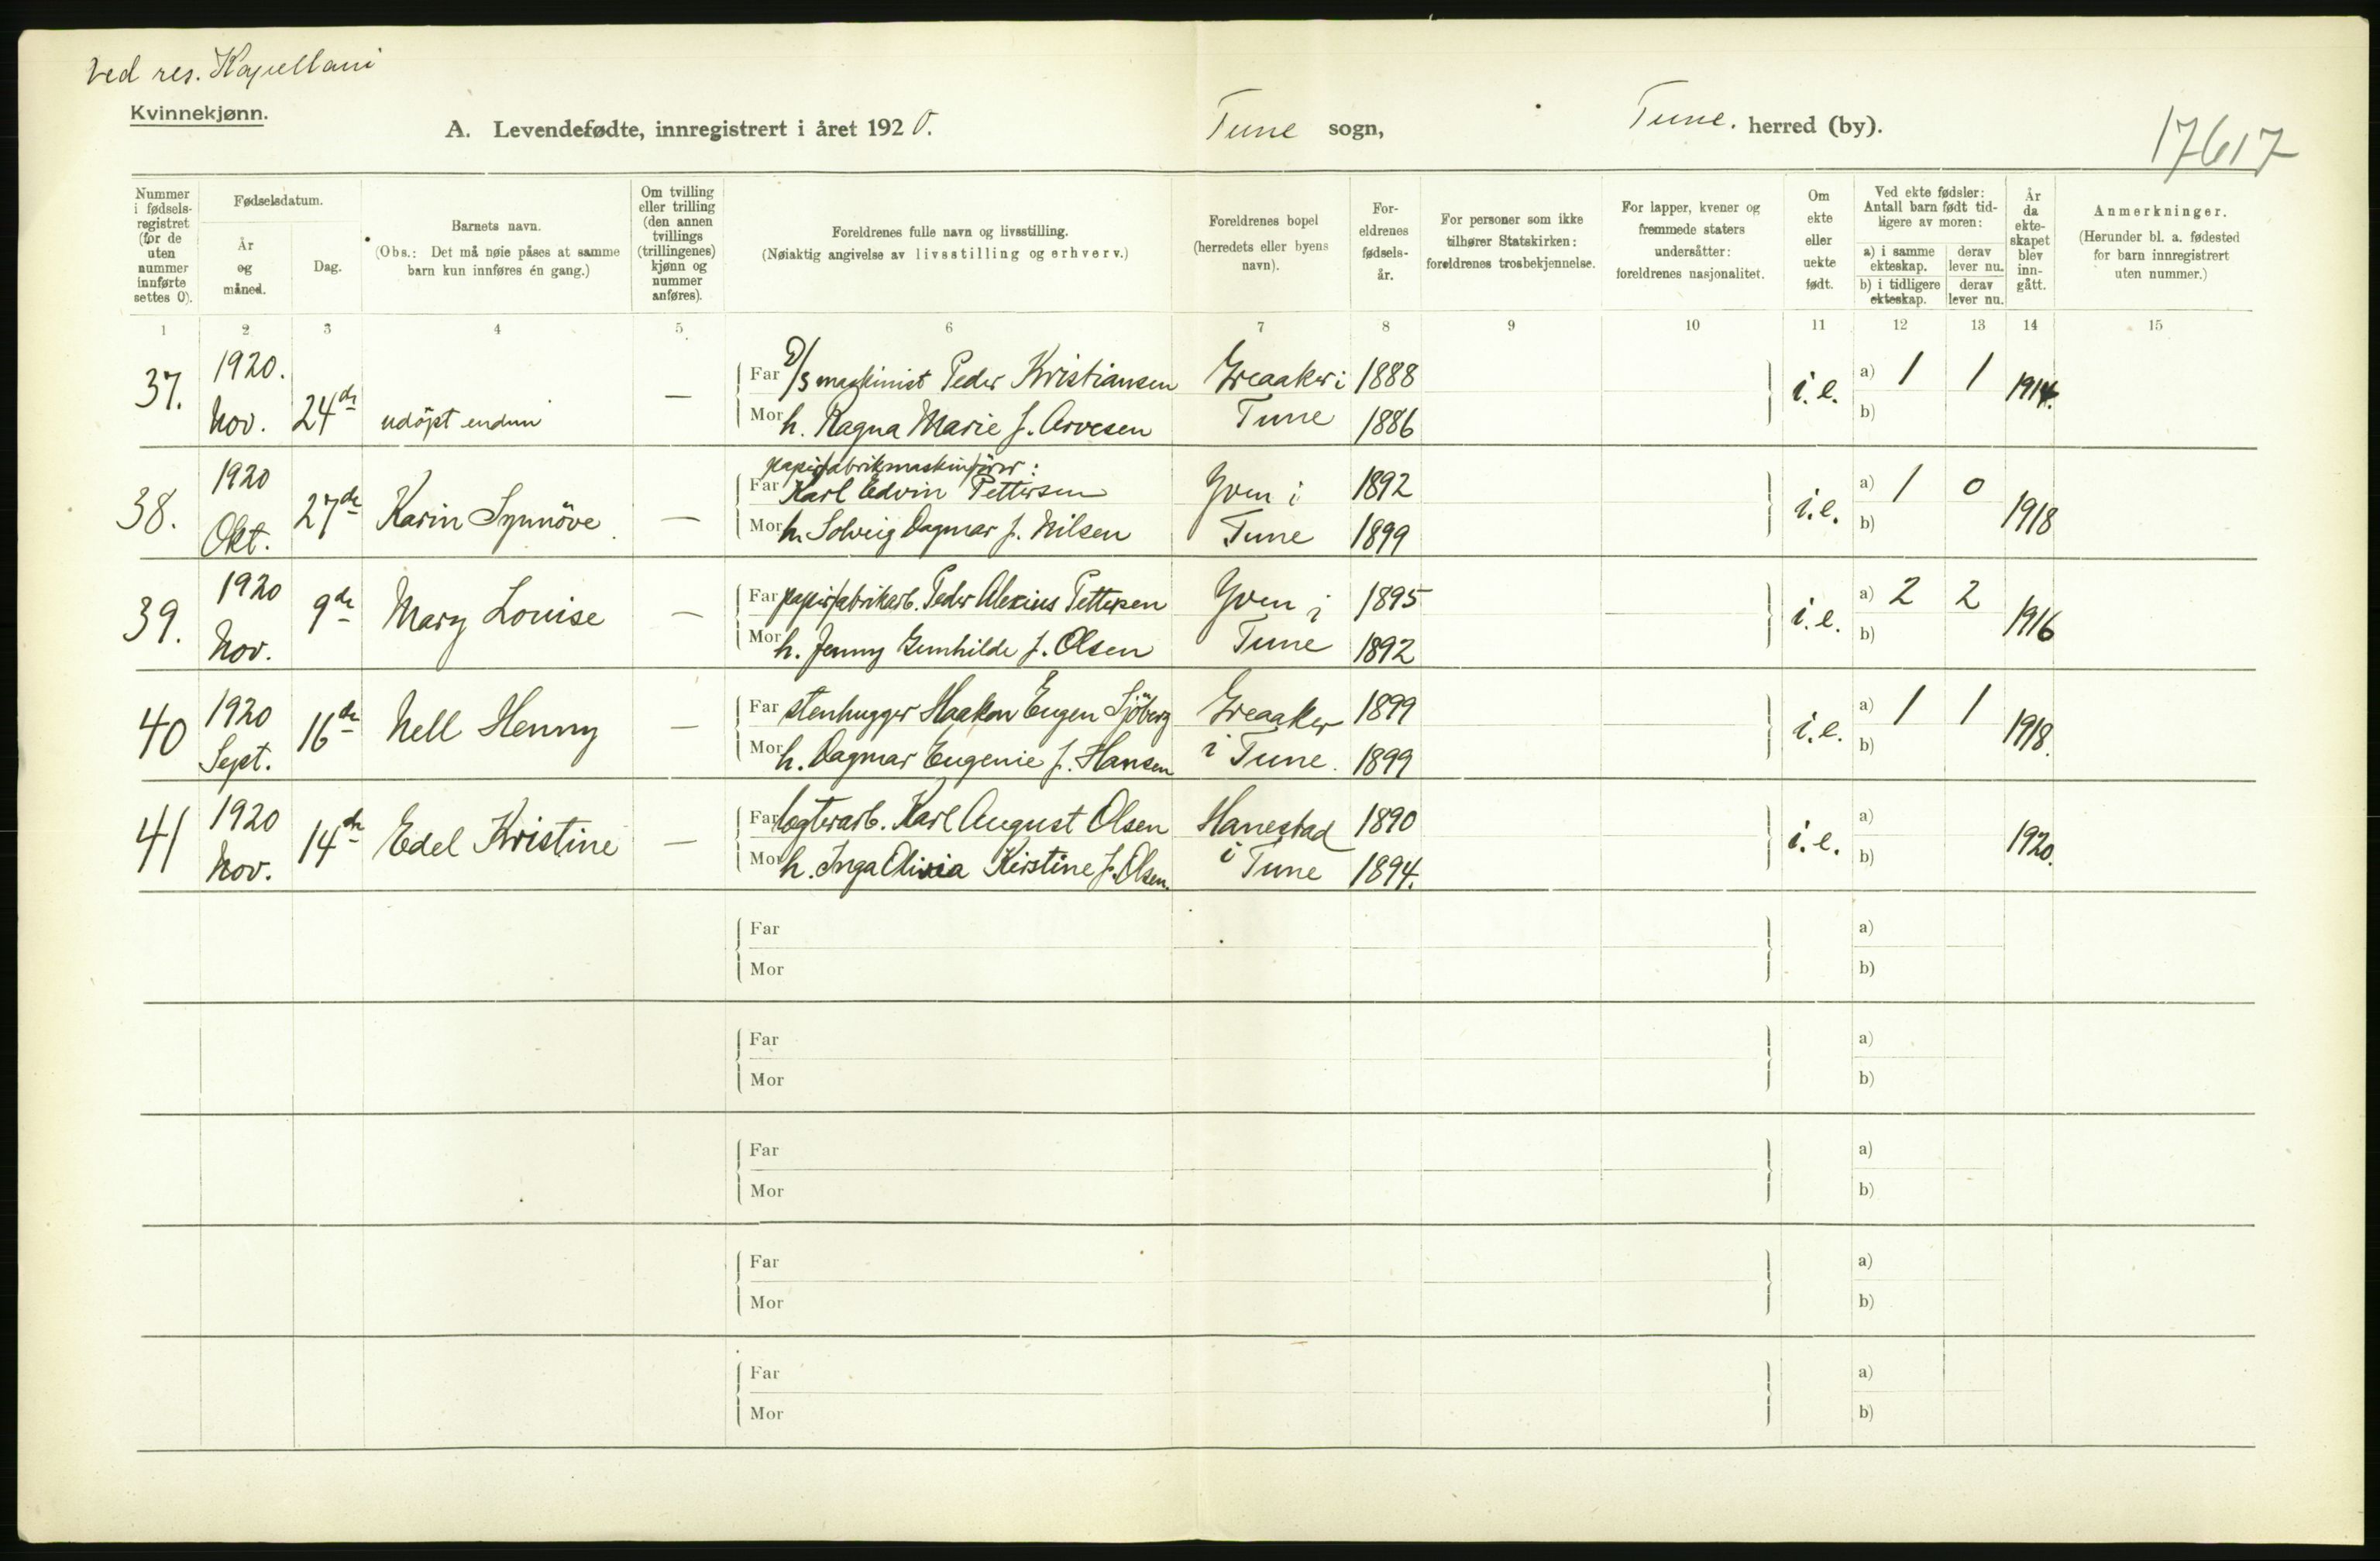 Ved res. Kapellani
Kvinnekjønn.
A. Levendefødte, innregistrert i året 1920. Tune sogn, Tune. herred (by).
17617
Nummer i fødsels-registret (for de uten nummer innførte settes 0).
Fødselsdatum.
År og måned.
Dag.
Barnets navn.
(Obs.: Det må nøie påses at samme barn kun innføres én gang.)
Om tvilling eller trilling (den annen tvillings (trillingenes) kjønn og nummer anføres).
Foreldrenes fulle navn og livsstilling.
(Nøiaktig angivelse av livsstilling og erhverv.)
Foreldrenes bopel (herredets eller byens navn).
For-eldrenes fødsels-år.
For personer som ikke tilhører Statskirken: foreldrenes trosbekjennelse.
For lapper, kvener og fremmede staters undersåtter: foreldrenes nasjonalitet.
Om ekte eller uekte født.
Ved ekte fødsler: Antall barn født tid-ligere av moren:
a) i samme ekteskap.
derav lever nu.
b) i tidligere ekteskap.
derav lever nu.
År da ekte-skapet blev inn-gått.
Anmerkninger.
(Herunder bl. a. fødested for barn innregistrert uten nummer.)
1 2 3 4 5 6 7 8 9 10 11 12 13 14 15
37. 1920. Nov. 24de udöpt endnu —
Far D/S maskinist Peder Kristiansen Greaaker i 1888
Mor h. Ragna Marie f. Arvesen Tune 1886
i. e. a) 1 1 b) 1914.
38. 1920 Okt. 27de Karin Synnöve —
papirfabrikmaskinförer:
Far Karl Edvin Pettersen Yven i 1892
Mor h. Solveig Dagmar f. Nilsen Tune 1899
i. e. a) 1 0 b) 1918
39. 1920 Nov. 9de Mary Louise —
Far papirfabrikarb. Peder Alexius Pettersen Yven i 1895
Mor h. Jenny Gunhilde f. Olsen Tune 1892
i. e. a) 2 2 b) 1916
40 1920 Sept. 16de Nell Henny —
Far stenhugger Haakon Eugen Sjöberg Greaaker 1899
Mor h. Dagmar Eugenie f. Hansen i Tune. 1899
i. e. a) 1 1 b) 1918.
41 1920 Nov. 14de Edel Kristine —
Far Karl August Olsen Hanestad 1890
Mor h. Inga Olivia Kirstine f. Olsen. i Tune 1894.
i. e. a) b) 1920.
Far a)
Mor b)
Far a)
Mor b)
Far a)
Mor b)
Far a)
Mor b)
Far a)
Mor b)